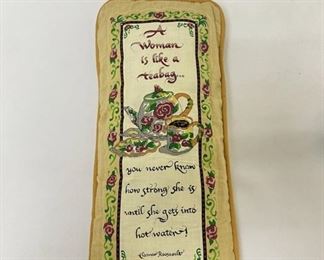 A
Woman
is like a
teabag...
you never know
how strong she is
until she gets into
hot water!
Eleanor Roosevelt